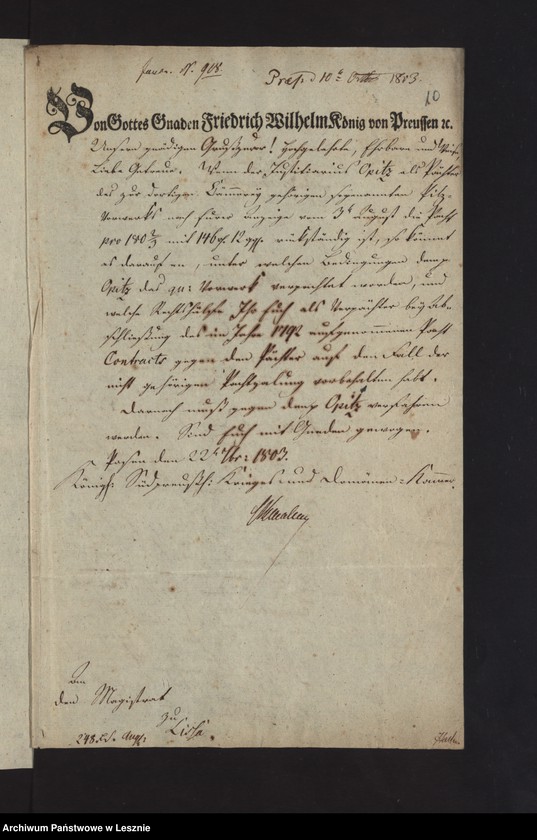 Journ. N. 908.
Praes. d 10t Octbr 1803.
10
Von Gottes Gnaden Friedrich Wilhelm König von Preussen ꝛc.
Unsern gnädigen Gruß zuvor! Hochgelehrte, Ehrbare und Weise,
Liebe Getreue. Wenn der Justitiarius Opitz als Pächter
des zur dortigen Cämmerey gehörigen sogenannten
Vorwerks nach Eurer Anzeige vom 3t August die Pacht
pro 180⅔ mit 146 rf 12 ggr. rückständig ist, so kommt
es darauf an, unter welchen Bedingungen dem p
Opitz das qu: Vorwerk verpachtet worden, und
welche Rechtshülfe Ihr Euch als Verpächter bey Ab-
schließung des im Jahre 1792 aufgenommenen Pacht
Contracts gegen den Pächter auf den Fall der
nicht gehörigen Pachtzalung vorbehalten habt.
Darnach muß gegen den p Opitz verfahren
werden. Sind Euch mit Gnaden gewogen.
Posen den 22t 7br: 1803.
Königl: Südpreußh: Krieges- und Domänen-Kammer.
An
den Magistrat
zu
Lissa.
248. Augf